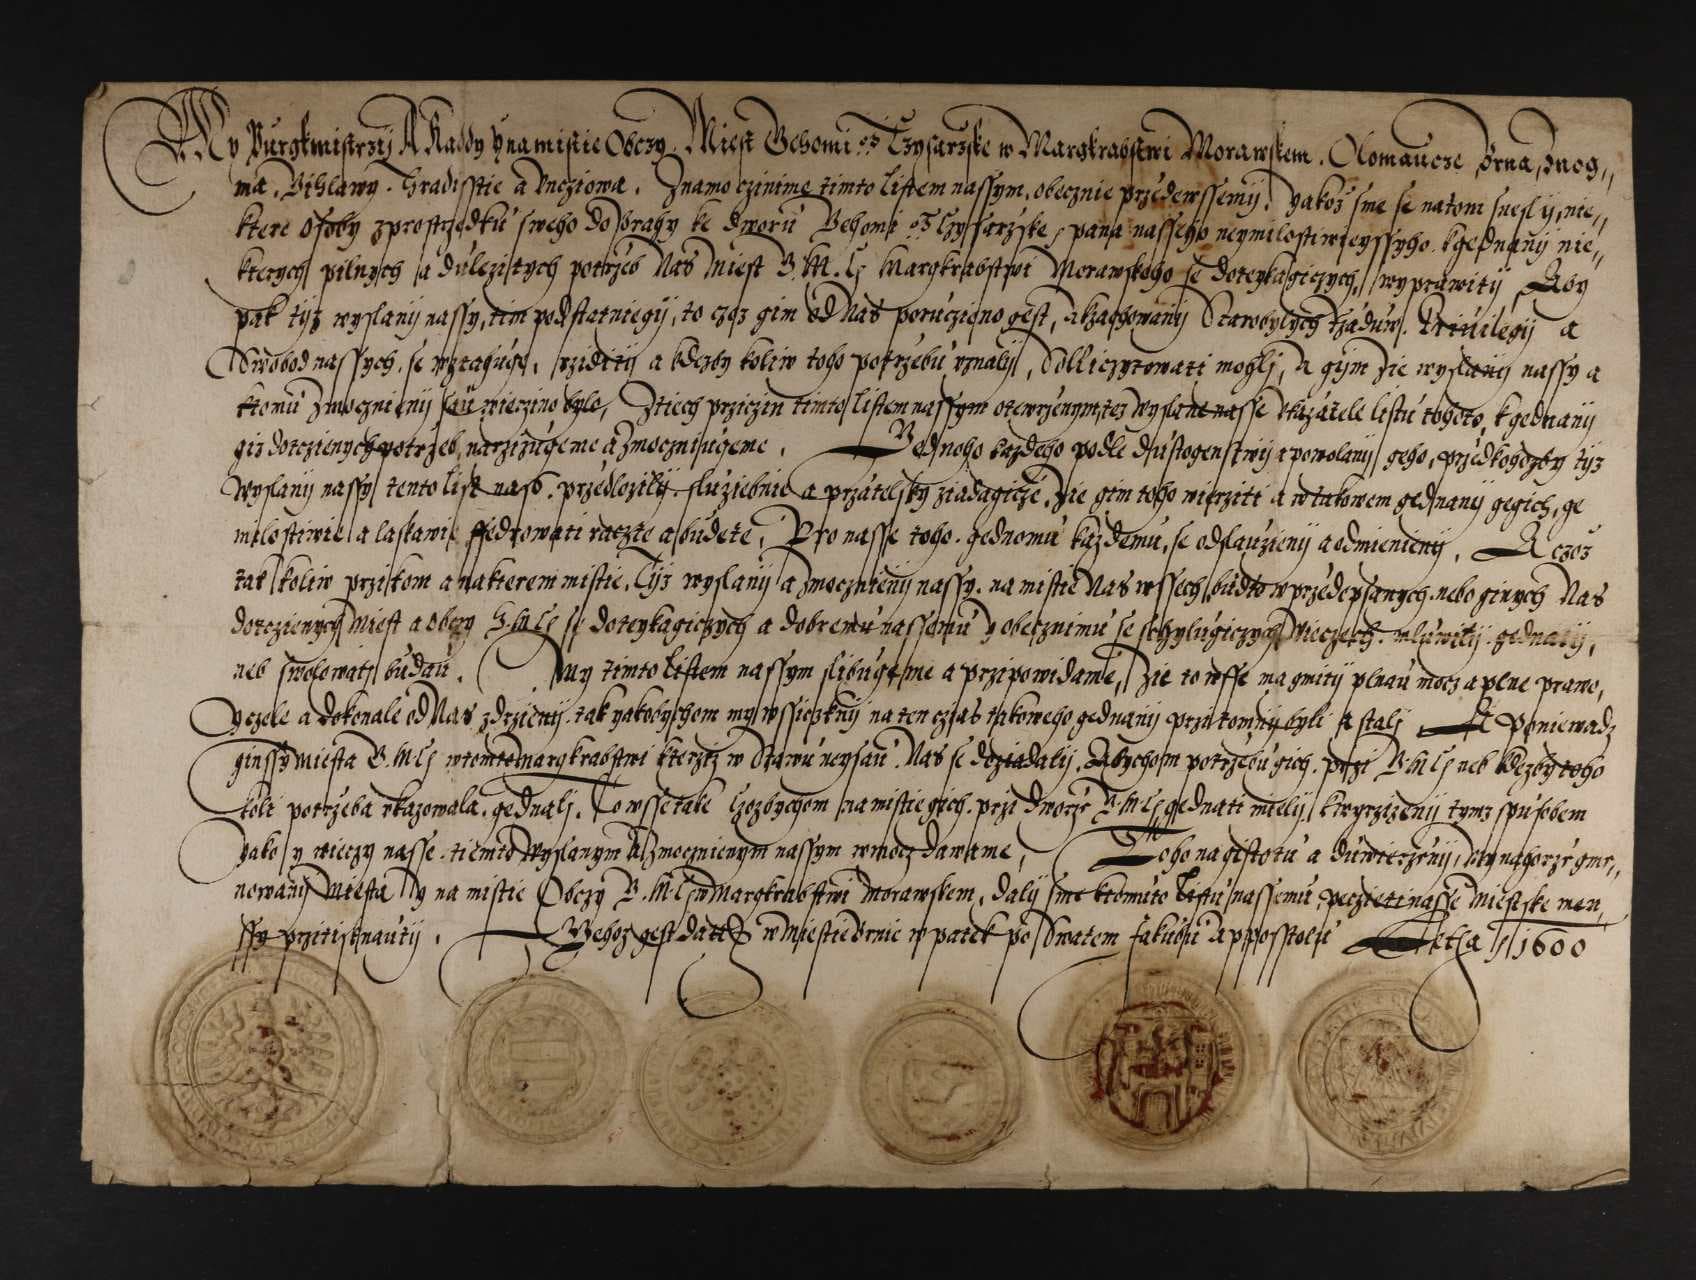 My Purgkmistrzij A Raddy y na mistie Obczy Miest Gehomi Czysarzske w Margkrabstwi Morawskem. Olomaucze Brna, Znog„
ma, Gihlawy, Hradisstie a Uncziowa. Znamo czinime timto listem nassym, obecznie przede wssemij, yakoz sme se na tom snesly, nie„
ktere Osoby z prostrzedku sweho do Prahy ke dworu Gehomi Czysarzske, pana nasseho neymilostiwieyssyho k gednanij nie„
kterych pilnych a dulezitych potrzeb Nas Miest G. M. Cz Margkrabstwi Morawskeho se doteykagiczych, wyprawity. Aby
pak tijz wyslanij nassy, tim podstatniegij, to czoz gim od Nas poruczieno gest, a k zachowanij Starobylych Rzaduw. Priuilegij a
Swobod nassych se wztahuge, rziditij a kdezby koliw toho potrzebu uznalij, Solliczytowati mohlj, A gijm zie wyslanij nassy a
k tomu Zmocznienij sau wierzino bylo, Z tiech prziczin timto listem nassym otewrzenym, tez wyslane nasse ukazatele listu tohoto, k gednanij
giz dotczienych potrzeb, narzizugeme a Zmoczniugeme. Gednoho kazdeho podle dustogenstwij a powolanij geho, przed kohozby tijz
Wyslanij nassy tento list nass przedlozilij, sluziebnie a przatelsky ziadagicze, zie gim toho wierziti a w takowem gednanij gegich, ge
milostiwie a laskawie ffedrowati raczte a budete, Pro nasse toho gednomu kazdemu, se odslauzienij a odmienienij. A czoz
tak koliw przi kom a na kterem mistie, Tijz wyslanij a Zmocznienij nassy na mistie Nas wssech, budto w przedepsanych nebo ginych Nas
dotczienych Miest a Obczy G. M. Cz se doteykagiczych a dobremu nassemu y obecznimu se schylugiczych Wieczech mluwitij gednatij,
neb swolowati budau. My timto Listem nassym slibugeme a przipowidame, Zie to wsse ma gmitij plnau mocz a plne prawo,
Czele a dokonale od Nas zdrzienij, tak yakobychom my wssiczknij na ten czias takoweho gednanij przitomnij byli a stalj. A Poniewadz
ginssy Miesta G. M. Cz w tomto Margkrabstwi kterziz w Stawu neysau Nas se doziadalij, Abychom potrzebu gich przi G. M. Cz neb kdezby toho
koli potrzeba ukazowala, gednalj, To wsse take czozbychom na mistie gich przi dworze G. M. Cz gednati mielij, k wyrzizenij tymz spusobem
yako y wieczy nasse tiemto Wyslanym a Zmocznienym nassym w mocz dawame, Toho na gistotu a duwierzenij, My nahorze gme„
nowanij Miesta y na mistie Obczy G. M. Cz w Margkrabstwi Morawskem, dalij sme k tomuto Listu nassemu, peczieti nasse Miestske men„
ssy przitisknautij. Gehoz gest datum w Miestie Brnie w patek po Swatem Jakubu Apposstolu Letha 1600